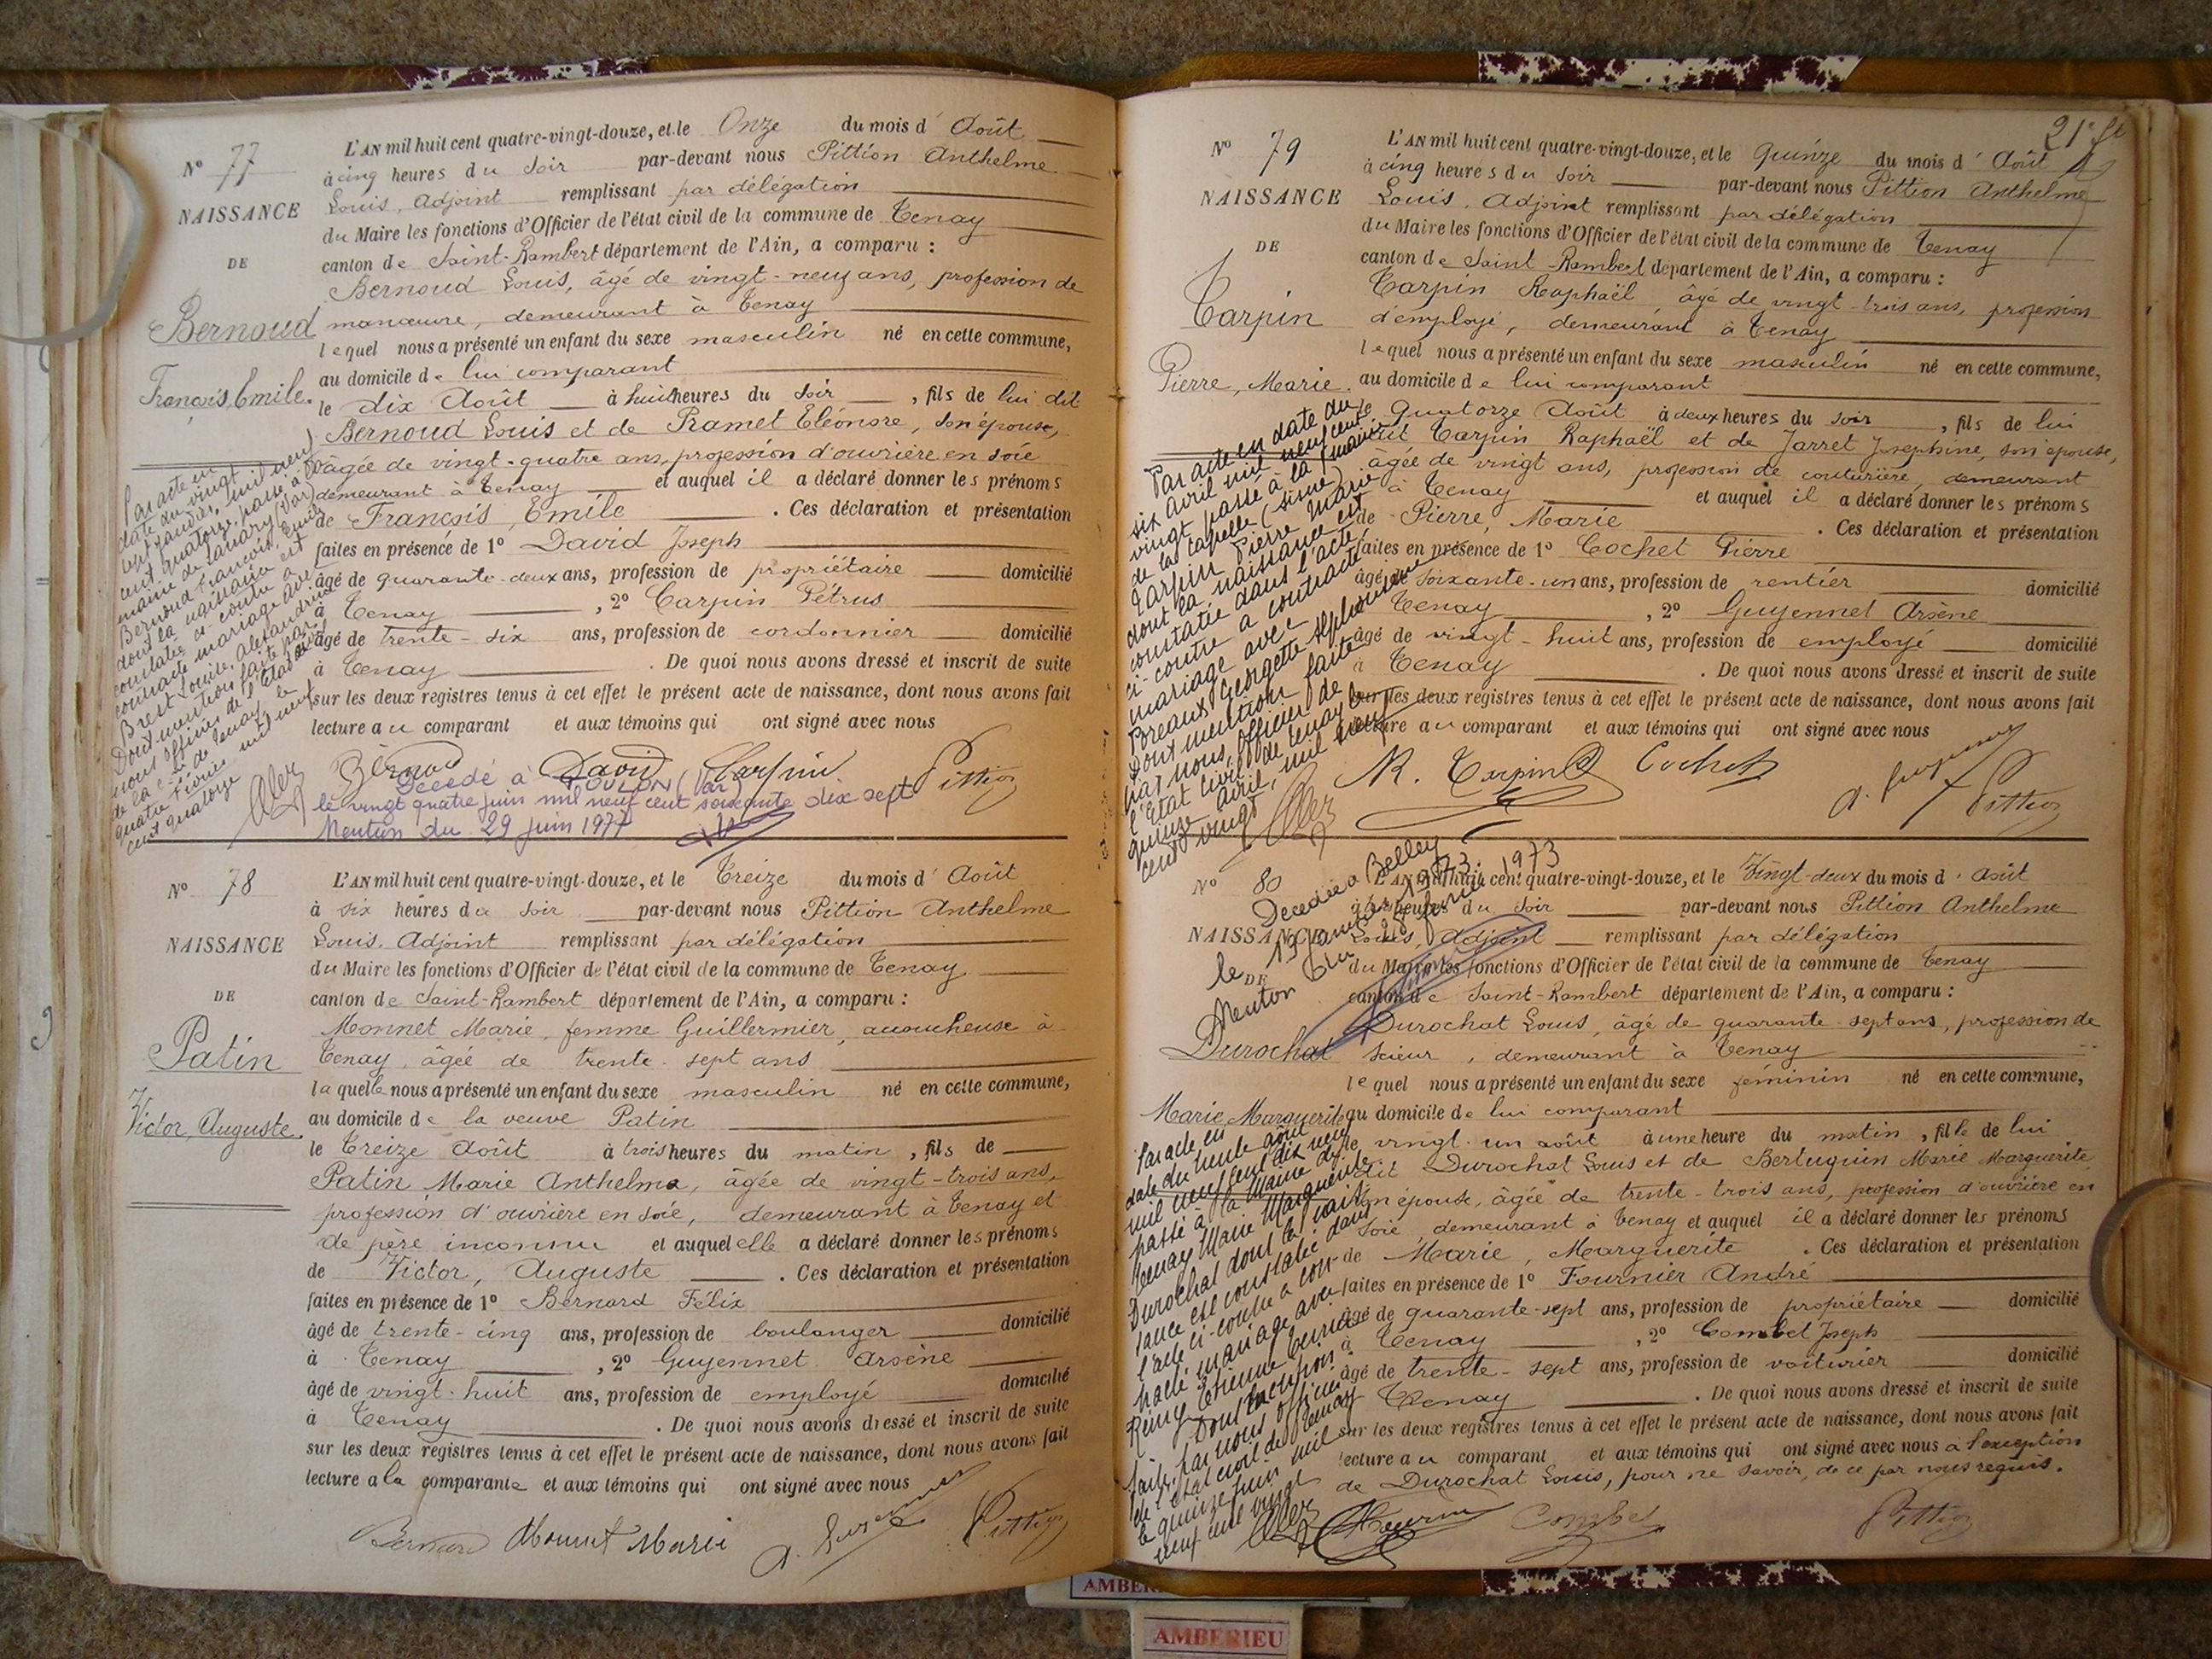 L'AN mil huit cent quatre-vingt-douze, et le Onze du mois d' Août
Nº 77
à cinq heures du soir par-devant nous Pittion Anthelme
Louis, Adjoint remplissant par délégation
NAISSANCE
du Maire les fonctions d'Officier de l'état civil de la commune de Tenay
DE
canton de Saint-Rambert département de l'Ain, a comparu :
Bernoud Louis, âgé de vingt-neuf ans, profession de
Bernoud
manœuvre, demeurant à Tenay
lequel nous a présenté un enfant du sexe masculin né en cette commune,
François, Emile.
au domicile de lui comparant
le dix Août à huit heures du soir, fils de lui dit
Bernoud Louis et de Ramet Eléonore, son épouse,
âgée de vingt-quatre ans, profession d'ouvrière en soie
demeurant à Tenay et auquel il a déclaré donner les prénoms
de François, Emile. Ces déclaration et présentation
faites en présence de 1º David Joseph
âgé de quarante-deux ans, profession de propriétaire domicilié
à Tenay, 2º Carpin Pétrus
âgé de trente-six ans, profession de cordonnier domicilié
à Tenay. De quoi nous avons dressé et inscrit de suite
sur les deux registres tenus à cet effet le présent acte de naissance, dont nous avons fait
lecture au comparant et aux témoins qui ont signé avec nous
Par acte en
date du vingt
sept janvier mil neuf
cent quatorze, passé à la
mairie de Sanary (Var)
Bernoud François, Emile
dont la naissance est
constatée ci-contre a
contracté mariage avec
Brest Louise, Alexandrine
Dont mention faite par
nous officier de l'Etat civil
de la Cne de Tenay le
quatre Février mil neuf
cent quatorze
Bernoud David Carpin Pittion
Décédé à TOULON (Var)
le vingt quatre juin mil neuf cent soixante dix sept
Mention du 29 juin 1977
Nº 78
L'AN mil huit cent quatre-vingt-douze, et le Treize du mois d' Août
à six heures du soir par-devant nous Pittion Anthelme
NAISSANCE
Louis, Adjoint remplissant par délégation
du Maire les fonctions d'Officier de l'état civil de la commune de Tenay
DE
canton de Saint-Rambert département de l'Ain, a comparu :
Monnet Marie, femme Guillermier, accoucheuse à
Patin
Tenay, âgée de trente-sept ans
laquelle nous a présenté un enfant du sexe masculin né en cette commune,
Victor, Auguste.
au domicile de la veuve Patin
le Treize Août à trois heures du matin, fils de
Patin Marie Anthelma, âgée de vingt-trois ans,
profession d'ouvrière en soie, demeurant à Tenay et
de père inconnu et auquel elle a déclaré donner les prénoms
de Victor, Auguste. Ces déclaration et présentation
faites en présence de 1º Bernard Félix
âgé de trente-cinq ans, profession de boulanger domicilié
à Tenay, 2º Guyennet Arsène
âgé de vingt-huit ans, profession de employé domicilié
à Tenay. De quoi nous avons dressé et inscrit de suite
sur les deux registres tenus à cet effet le présent acte de naissance, dont nous avons fait
lecture a la comparante et aux témoins qui ont signé avec nous
Bernard Monnet Marie A. Guyennet Pittion
21e ft
Nº 79
L'AN mil huit cent quatre-vingt-douze, et le quinze du mois d' Août
à cinq heures du soir par-devant nous Pittion Anthelme
NAISSANCE
Louis, Adjoint remplissant par délégation
du Maire les fonctions d'Officier de l'état civil de la commune de Tenay
DE
canton de Saint-Rambert département de l'Ain, a comparu :
Carpin Raphaël âgé de vingt-trois ans, profession
Carpin
d'employé, demeurant à Tenay
lequel nous a présenté un enfant du sexe masculin né en cette commune,
Pierre, Marie.
au domicile de lui comparant
le Quatorze Août à deux heures du soir, fils de lui
dit Carpin Raphaël et de Jarret Joséphine, son épouse,
âgée de vingt ans, profession de couturière, demeurant
à Tenay et auquel il a déclaré donner les prénoms
de Pierre, Marie. Ces déclaration et présentation
faites en présence de 1º Cochet Pierre
âgé de soixante-un ans, profession de rentier domicilié
à Tenay, 2º Guyennet Arsène
âgé de vingt-huit ans, profession de employé domicilié
à Tenay. De quoi nous avons dressé et inscrit de suite
sur les deux registres tenus à cet effet le présent acte de naissance, dont nous avons fait
lecture au comparant et aux témoins qui ont signé avec nous
Par acte en date du
six avril mil neuf cent
vingt passé à la mairie
de la Capelle (Aisne)
Carpin Pierre Marie
dont la naissance est
constatée dans l'acte
ci-contre a contracté
mariage avec
Poreaux Georgette Stéphanie
Dont mention faite
par nous, officier de
l'Etat civil de Tenay le
quinze avril, mil neuf
cent vingt
R. Carpin Cochet A. Guyennet Pittion
Nº 80
Décédée à Belley
le 13 janvier 1973
Mention du 28 février 1973
L'AN mil huit cent quatre-vingt-douze, et le Vingt-deux du mois d' août
heures du soir par-devant nous Pittion Anthelme
NAISSANCE
Louis, Adjoint remplissant par délégation
DE
du Maire les fonctions d'Officier de l'état civil de la commune de Tenay
canton de Saint-Rambert département de l'Ain, a comparu :
Durochat Louis, âgé de quarante-sept ans, profession de
Durochat
scieur, demeurant à Tenay
lequel nous a présenté un enfant du sexe féminin né en cette commune,
Marie Marguerite
au domicile de lui comparant
le vingt-un août à une heure du matin, fille de lui
dit Durochat Louis et de Berluquin Marie Marguerite
son épouse, âgée de trente-trois ans, profession d'ouvrière en
soie, demeurant à Tenay et auquel il a déclaré donner les prénoms
de Marie, Marguerite. Ces déclaration et présentation
faites en présence de 1º Fournier André
âgé de quarante-sept ans, profession de propriétaire domicilié
à Tenay, 2º Combet Joseph
âgé de trente-sept ans, profession de voiturier domicilié
à Tenay. De quoi nous avons dressé et inscrit de suite
sur les deux registres tenus à cet effet le présent acte de naissance, dont nous avons fait
lecture au comparant et aux témoins qui ont signé avec nous à l'exception
de Durochat Louis, pour ne savoir, de ce par nous requis.
Par acte en
date du trente août
mil neuf cent dix neuf
passé à la Mairie de
Tenay Marie Marguerite
Durochat dont la nais-
sance est constatée dans
l'acte ci-contre a con-
tracté mariage avec
Rémy Etienne
Dont mention
faite par nous officier
de l'état civil de Tenay
le quinze juin mil
neuf cent vingt
Combet Pittion
AMBERIEU